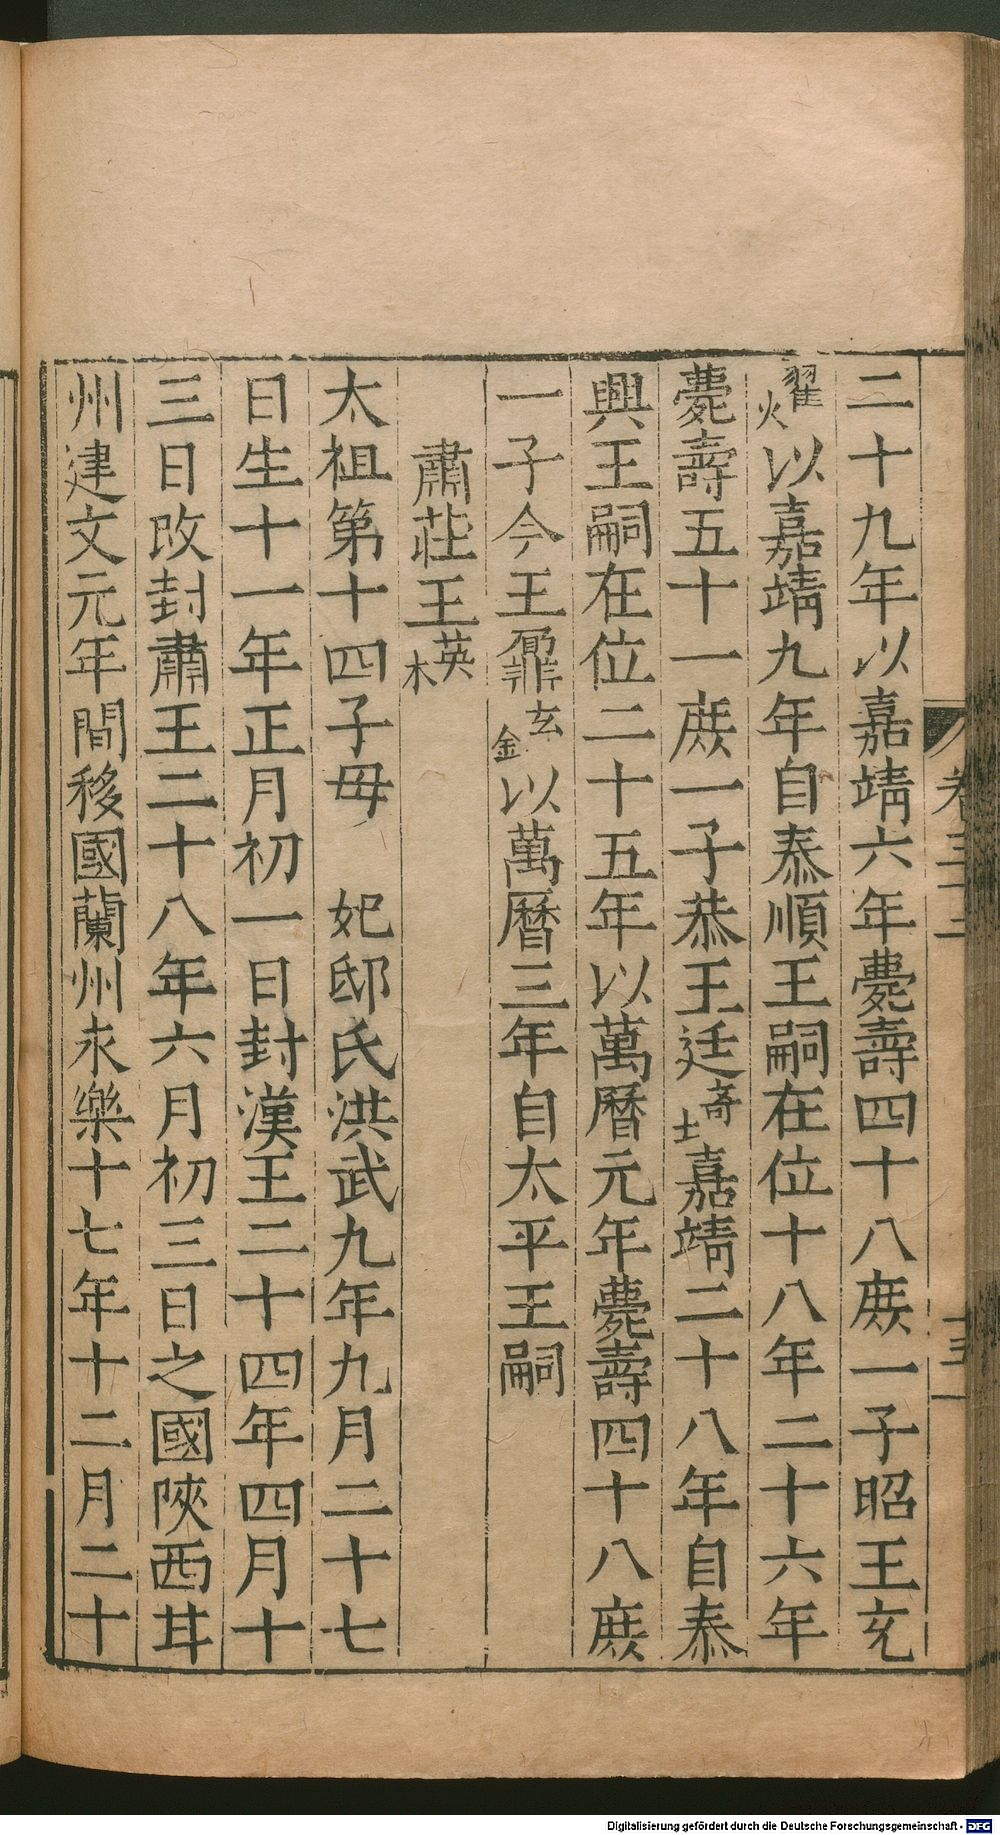 二十九年以嘉靖六年薨壽四十八庶一子昭王充
燿以嘉靖九年自泰順王嗣在位十八年二十六年
薨壽五十一庶一子恭王廷埼嘉靖二十八年自泰
興王嗣在位二十五年以萬曆元年薨壽四十八庶
一子今王鼐鉉以萬曆三年自太平王嗣
肅莊王楧
太祖第十四子母　妃邸氏洪武九年九月二十七
日生十一年正月初一日封漢王二十四年四月十
三日改封肅王二十八年六月初三日之國陝西甘
州建文元年間移國蘭州永樂十七年十二月二十
卷三十二
十三
Digitalisierung gefördert durch die Deutsche Forschungsgemeinschaft - DFG